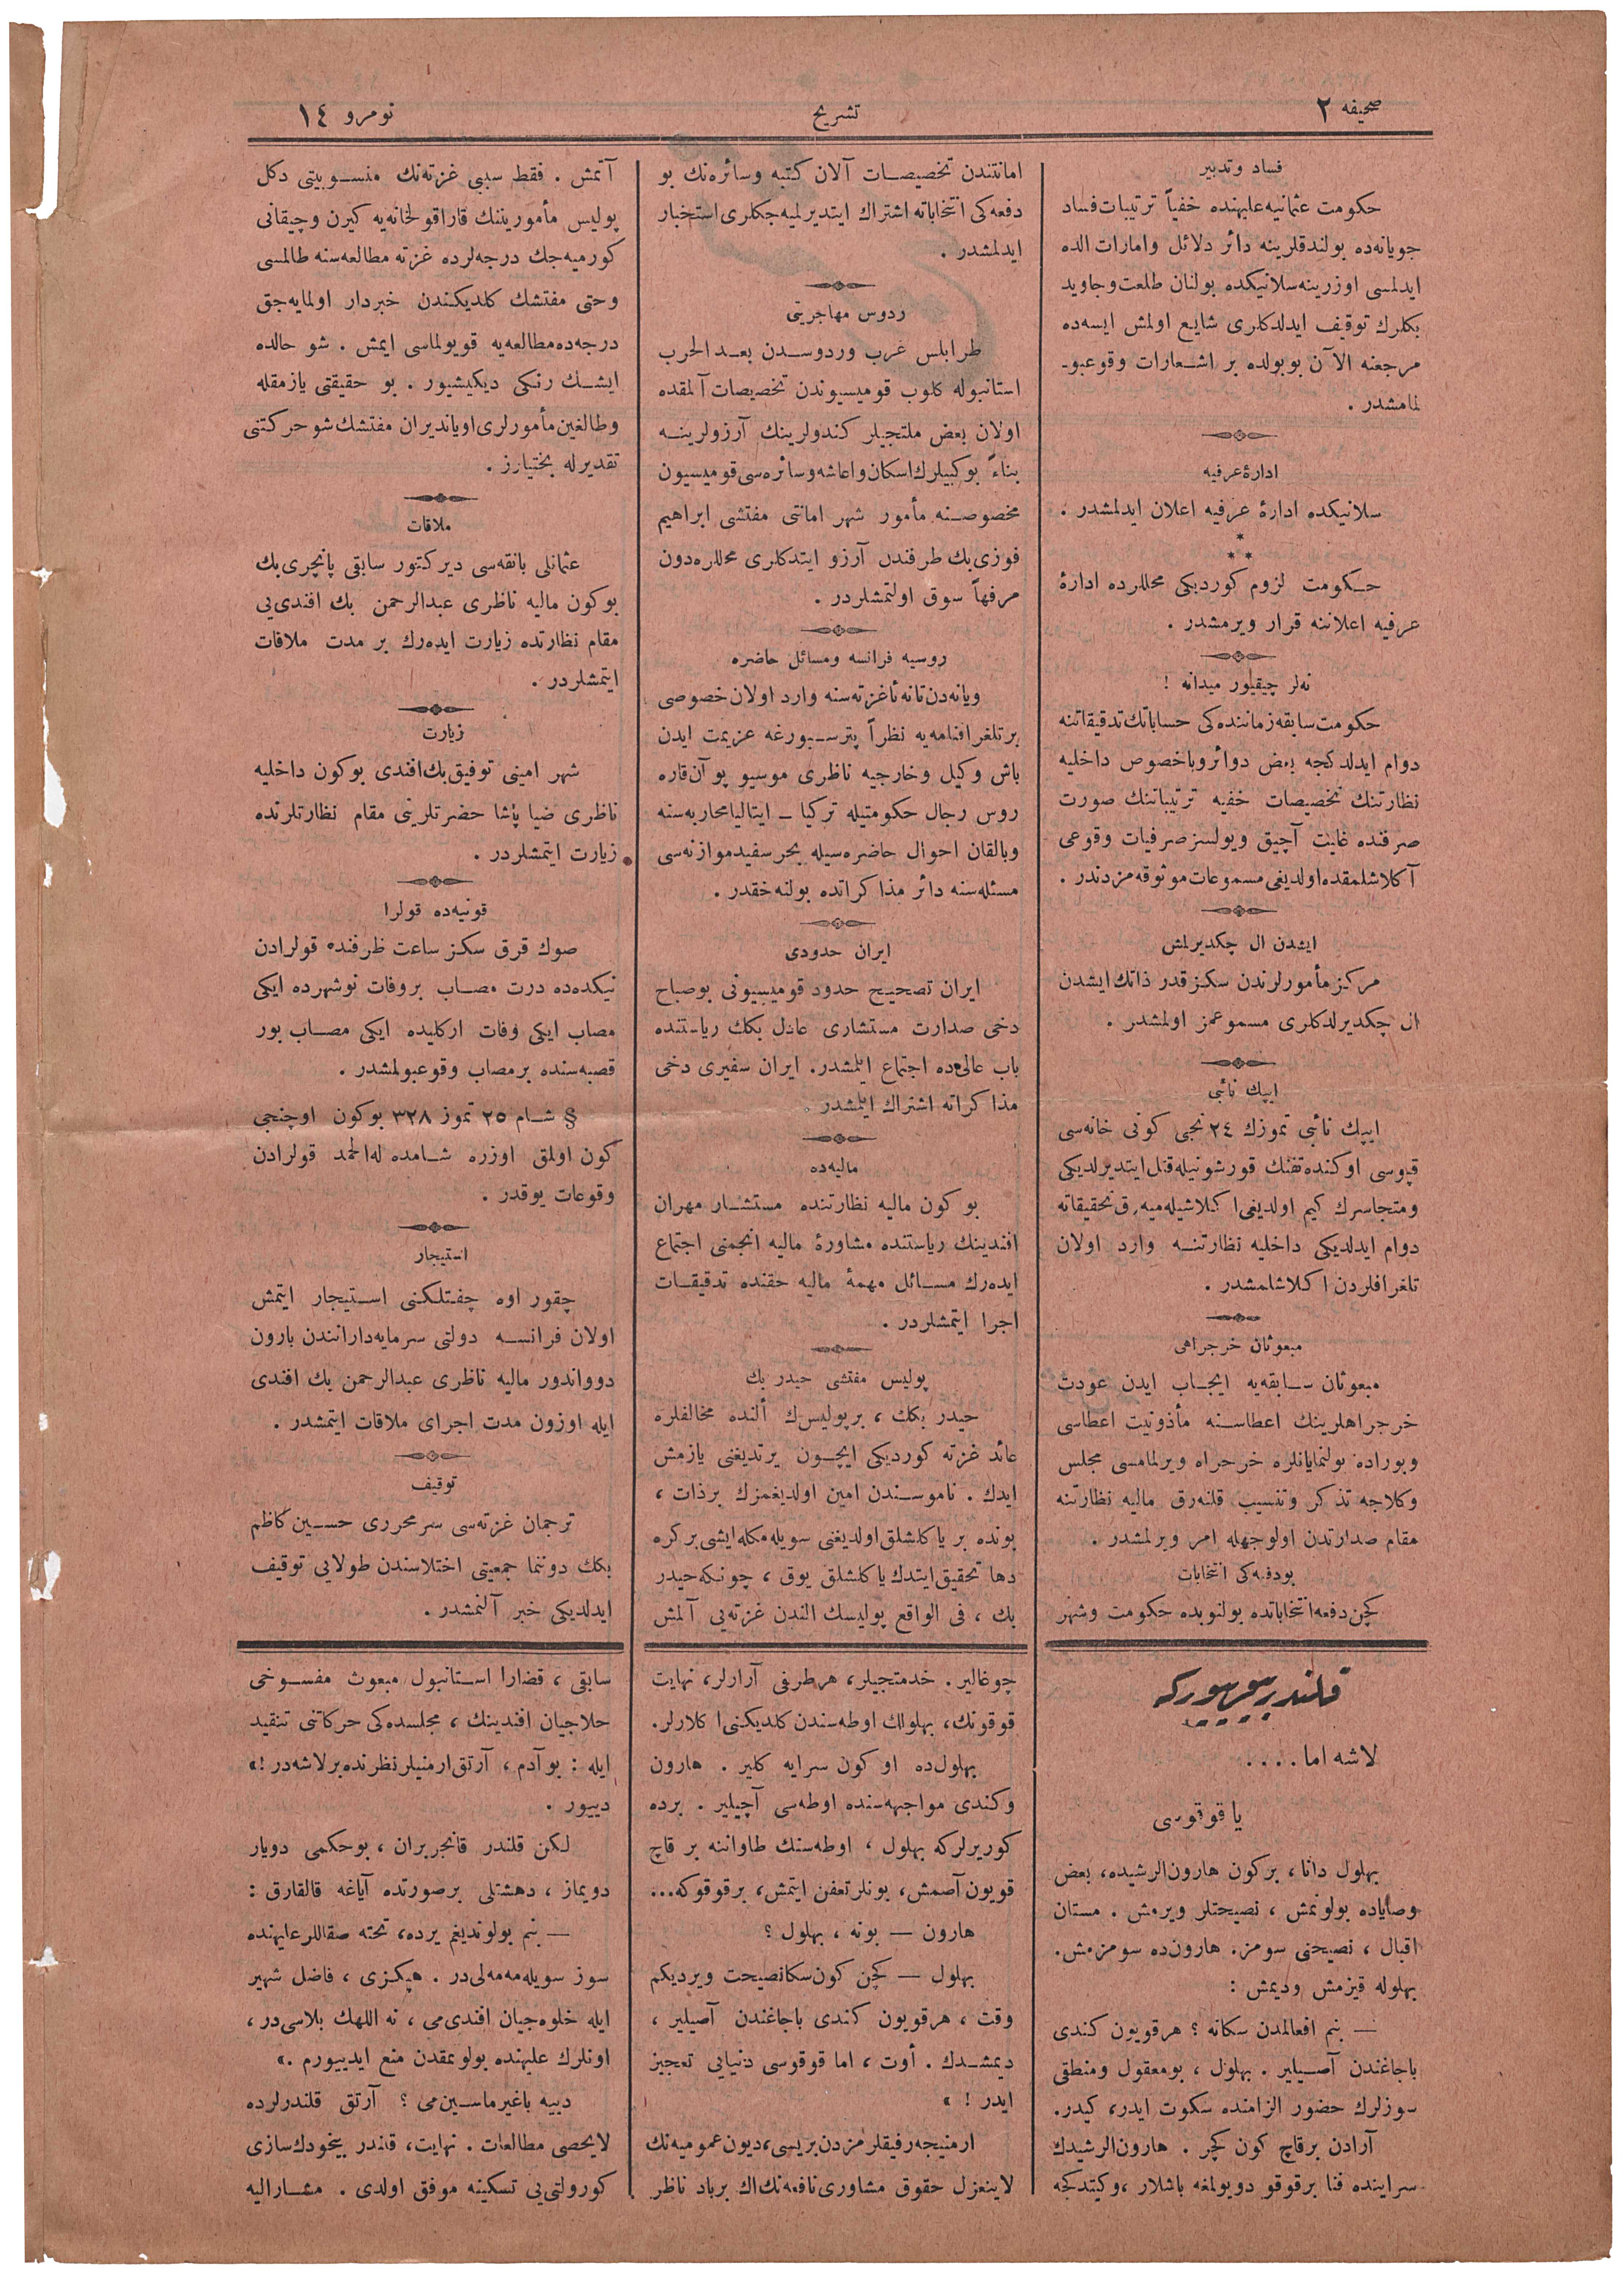 صحیفه ٢
تشریح
نومرو ١٤
فساد وتدبیر
حکومت عثمانیه علیهنده خفیاً ترتیبات فساد
جویانه‌ده بولندقلرینه دائر دلائل وامارات الده
ایدلمسی اوزرینه سلانیکده بولنان طلعت وجاوید
بکلرك توقیف ایدلدکلری شایع اولمش ایسه‌ده
مرجعنه الآن بوبولده بر اشعارات وقوعبو-
لمامشدر .
ادارهٔ عرفیه
سلانیکده ادارهٔ عرفیه اعلان ایدلمشدر .
* * *
حکومت لزوم کوردیکی محللرده ادارهٔ
عرفیه اعلاننه قرار ویرمشدر .
نه‌لر چیقیلور میدانه !
حکومت سابقه زماننده‌کی حساباتك تدقیقاتنه
دوام ایدلدکجه بعض دوائر وباخصوص داخلیه
نظارتنك تخصیصات خفیه ترتیباتنك صورت
صرفنده غایت آچیق ویولسز صرفیات وقوعی
آکلاشلمقده اولدیغی مسموعات موثوقه مزدندر .
ایشدن ال چکدیرلمش
مرکز مأمورلرندن سکز قدر ذاتك ایشدن
ال چکدیرلدکلری مسموعمز اولمشدر .
ایپك نائبی
ایپك نائبی تموزك ٢٤ نجی کونی خانه‌سی
قپوسی اوکنده تفنك قورشونیله قتل ایتدیرلدیکی
ومتجاسرك کیم اولدیغی اکلاشیله‌میه‌رق تحقیقاته
دوام ایدلدیکی داخلیه نظارتنه وارد اولان
تلغرافلردن اکلاشلمشدر .
مبعوثان خرجراهی
مبعوثان سابقه‌یه ایجاب ایدن عودت
خرجراهلرینك اعطاسنه مأذونیت اعطاسی
وبوراده بولنمایانلره خرجراه ویرلمامسی مجلس
وکلاجه تذکر وتنسیب قلنه‌رق مالیه نظارتنه
مقام صدارتدن اولوجهله امر ویرلمشدر .
بودفعه‌کی انتخابات
کچن دفعه انتخاباتده بولنوبده حکومت وشهر
امانتندن تخصیصات آلان کتبه وسائره‌نك بو
دفعه‌کی انتخاباته اشتراك ایتدیرلمیه‌جکلری استخبار
ایدلمشدر .
ردوس مهاجریتی
طرابلس غرب وردوسدن بعد الحرب
استانبوله کلوب قومیسیوندن تخصیصات آلمقده
اولان بعض ملتجیلر کندولرینك آرزولرینه
بناءً بوکبیلرك اسکان واعاشه وسائره‌سی قومیسیون
مخصوصنه مأمور شهر امانتی مفتشی ابراهیم
فوزی بك طرفندن آرزو ایتدکلری محللره دون
مرفهاً سوق اولنمشلردر .
روسیه فرانسه ومسائل حاضره
ویانه‌دن تانه ئاغزته‌سنه وارد اولان خصوصی
برتلغرافنامه‌یه نظراً پترسبورغه عزیمت ایدن
باش وکیل وخارجیه ناظری موسیو پوآن‌قاره
روس رجال حکومتیله ترکیا ـ ایتالیا محاربه‌سنه
وبالقان احوال حاضره‌سیله بحرسفید موازنه‌سی
مسئله‌سنه دائر مذاکراتده بولنه‌جقدر .
ایران حدودی
ایران تصحیح حدود قومیسیونی بوصباح
دخی صدارت مستشاری عادل بکك ریاستنده
باب عالی‌ده اجتماع ایلمشدر. ایران سفیری دخی
مذاکراته اشتراك ایلمشدر .
مالیه‌ده
بوکون مالیه نظارتنده مستشار مهران
افندینك ریاستنده مشاورهٔ مالیه انجمنی اجتماع
ایده‌رك مسائل مهمهٔ مالیه حقنده تدقیقات
اجرا ایتمشلردر .
پولیس مفتشی حیدر بك
حیدر بكك ، برپولیسك ألنده مخالفلره
عائد غزته کوردیکی ایچون یرتدیغنی یازمش
ایدك . ناموسندن امین اولدیغمزك برذات ،
بونده بر یاکلشلق اولدیغنی سویله‌مکله ایشی برکره
دها تحقیق ایتدك یاکلشلق یوق ، چونکه حیدر
بك ، فی الواقع پولیسك الندن غزته‌یی آلمش
آتمش . فقط سببی غزته‌نك منسوبیتی دکل
پولیس مأموریننك قاراقولخانه‌یه کیرن وچیقانی
کورمیه‌جك درجه‌لرده غزته مطالعه‌سنه طالمسی
وحتی مفتشك کلدیکندن خبردار اولمایه‌جق
درجه‌ده مطالعه‌یه قویولماسی ایمش . شو حالده
ایشك رنکی دیکیشیور . بو حقیقتی یازمقله
وطالغین مأمورلری اویاندیران مفتشك شو حرکتنی
تقدیرله بختیارز .
ملاقات
عثمانلی بانقه‌سی دیرکتور سابقی پانچری بك
بوکون مالیه ناظری عبدالرحمن بك افندی‌یی
مقام نظارتده زیارت ایده‌رك بر مدت ملاقات
ایتمشلردر .
زیارت
شهر امینی توفیق بك افندی بوکون داخلیه
ناظری ضیا پاشا حضرتلرینی مقام نظارتلرنده
زیارت ایتمشلردر .
قونیه‌ده قولرا
صوك قرق سکز ساعت ظرفنده قولرادن
نیکده‌ده درت مصاب بروفات نوشهرده ایکی
مصاب ایکی وفات ارکلیده ایکی مصاب بور
قصبه‌سنده برمصاب وقوعبولمشدر .
§ شام ٢٥ تموز ٣٢٨ بوکون اوچنجی
کون اولمق اوزره شامده له‌الحمد قولرادن
وقوعات یوقدر .
استیجار
چقور اوه چفتلکنی استیجار ایتمش
اولان فرانسه دولتی سرمایه‌دارانندن بارون
دوواندور مالیه ناظری عبدالرحمن بك افندی
ایله اوزون مدت اجرای ملاقات ایتمشدر .
توقیف
ترجمان غزته‌سی سرمحرری حسین کاظم
بكك دوننما جمعیتی اختلاسندن طولایی توقیف
ایدلدیکی خبر آلنمشدر .
قلندر بیوریورکه
لاشه اما....
یا قوقوسی
بهلول دانا ، برکون هارون‌الرشیده، بعض
وصایاده بولونمش ، نصیحتلر ویرمش . مستان
اقبال ، نصیحتی سومز. هارون‌ده سومزمش.
بهلوله قیزمش ودیمش :
— بنم افعالمدن سکانه ؟ هرقویون کندی
باجاغندن آصیلیر . بهلول ، بومعقول ومنطقی
سوزلرك حضور الزامنده سکوت ایدر، کیدر.
آرادن برقاچ کون کچر . هارون‌الرشیدك
سراینده فنا برقوقو دویولمغه باشلار ،وکیتدکجه
چوغالیر . خدمتجیلر، هرطرفی آرارلر، نهایت
قوقونك، بهلولك اوطه‌سندن کلدیکنی اکلارلر.
بهلول‌ده او کون سرایه کلیر . هارون
وکندی مواجهه‌سنده اوطه‌سی آچیلیر . برده
کوریرلرکه بهلول ، اوطه‌سنك طاواننه بر قاچ
قویون آصمش، بونلر تعفن ایتمش، برقوقوکه...
هارون — بونه ، بهلول ؟
بهلول — کچن کون سکانصیحت ویردیکم
وقت ، هرقویون کندی باجاغندن آصیلیر ،
دیمشدك . أوت ، اما قوقوسی دنیایی تعجیز
ایدر ! »
ارمنیجه رفیقلرمزدن بریسی، دیون عمومیه‌نك
لاینعزل حقوق مشاوری نافعه‌نك اك برباد ناظر
سابقی ، قضارا استانبول مبعوث مفسوخی
حلاجیان افندینك ، مجلسده‌کی حرکاتنی تنقید
ایله : بوآدم ، آرتق ارمنیلر نظرنده برلاشه‌در !»
دییور .
لکن قلندر قانجربران ، بوحکمی دویار
دویماز ، دهشتلی برصورتده آیاغه قالقارق :
— بنم بولوندیغم یرده، تخته صقاللر علیهنده
سوز سویله‌مه‌مه‌لی‌در . هپکزی ، فاضل شهیر
ایله خلوه‌جیان افندی‌می ، نه اللهك بلاسی‌در ،
اونلرك علیهنده بولونمقدن منع ایدییورم .»
دییه باغیرماسین‌می ؟ آرتق قلندرلرده
لایحصی مطالعات . نهایت، قلندر بیخودك سازی
کورولتی‌یی تسکینه موفق اولدی . مشارالیه